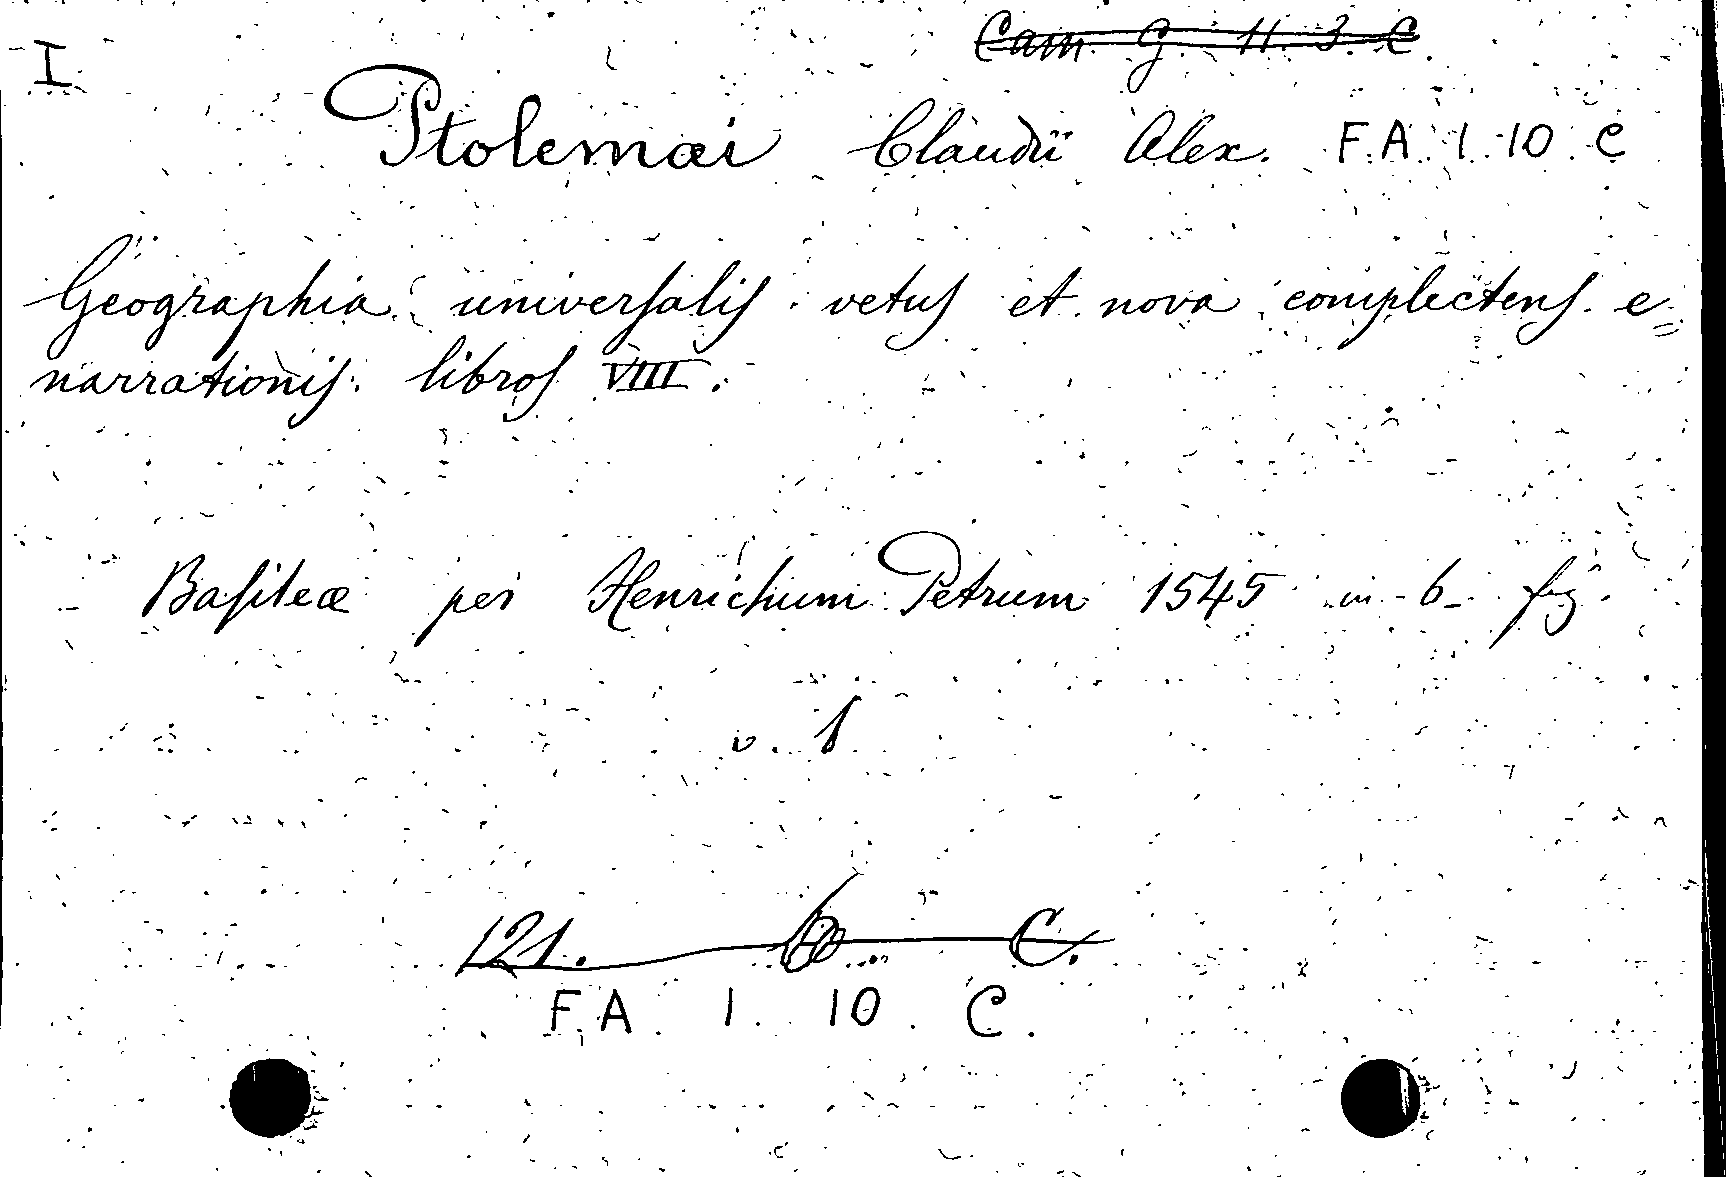 Cam G. 11. 3. C.
I
Ptolemæi Claudii Alex. F. A. 1. 10. C
Geographia universalis vetus et nova complectens e=
narrationis libros VIII.
Basileæ per Henrichum Petrum 1545 in 6 fig.
v. 1
121. C.
F. A. 1. 10. C.